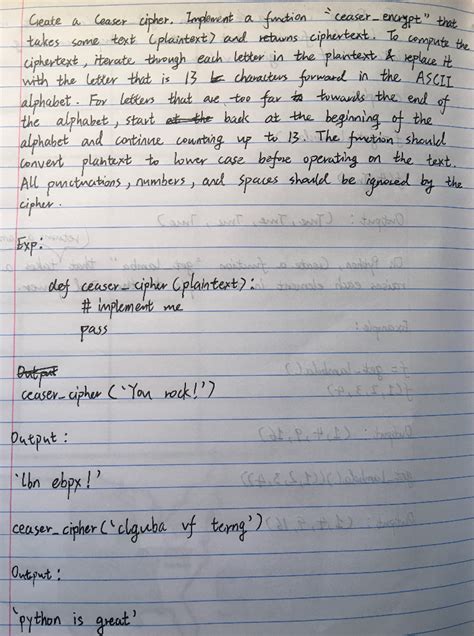 Create a Ceaser cipher. Implement a function "ceaser_encrypt" that
takes some text (plaintext) and returns ciphertext. To compute the
ciphertext, iterate through each letter in the plaintext & replace it
with the letter that is 13 characters forward in the ASCII
alphabet. For letters that are too far to towards the end of
the alphabet, start at the back at the beginning of the
alphabet and continue counting up to 13. The function should
convert plaintext to lower case before operating on the text.
All punctuations, numbers, and spaces should be ignored by the
cipher.
Exp:
def ceaser_cipher (plaintext):
# implement me
pass
Output
ceaser_cipher ('You rock!')
Output:
'lbh ebpx!'
ceaser_cipher ('clguba vf terng')
Output:
'python is great'